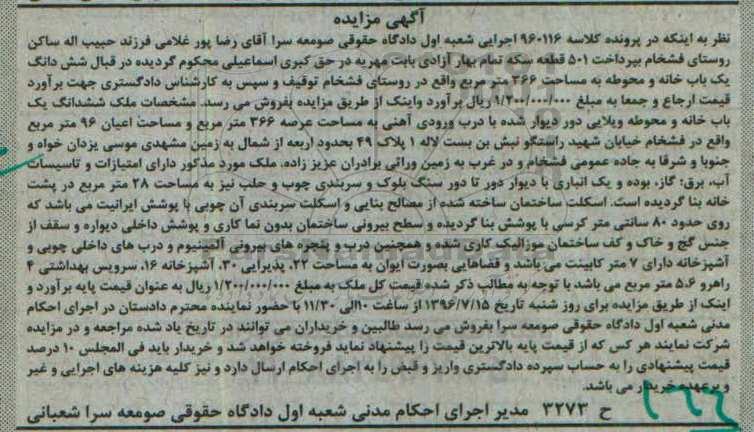 آگهی مزایده
نظر به اینکه در پرونده کلاسه ۹۶۰۱۱۶ اجرایی شعبه اول دادگاه حقوقی صومعه سرا آقای رضا پور غلامی فرزند حبیب اله ساکن
روستای فشخام بپرداخت ۵۰۱ قطعه سکه تمام بهار آزادی بابت مهریه در حق کبری اسماعیلی محکوم گردیده در قبال شش دانگ
یک باب خانه و محوطه به مساحت ۳۶۶ متر مربع واقع در روستای فشخام توقیف و سپس به کارشناس دادگستری جهت برآورد
قیمت ارجاع و جمعا به مبلغ ۱/۲۰۰/۰۰۰/۰۰۰ ریال برآورد واینک از طریق مزایده بفروش می رسد. مشخصات ملک ششدانگ یک
باب خانه و محوطه ویلایی دور دیوار شده با درب ورودی آهنی به مساحت عرصه ۳۶۶ متر مربع و مساحت اعیان ۹۶ متر مربع
واقع در فشخام خیابان شهید راستگو نبش بن بست لاله ۱ پلاک ۴۹ بحدود اربعه از شمال به زمین مشهدی موسی یزدان خواه و
جنوبا و شرقا به جاده عمومی فشخام و در غرب به زمین وراثی برادران عزیز زاده، ملک مورد مذکور دارای امتیازات و تاسیسات
آب، برق؛ گاز، بوده و یک انباری با دیوار دور تا دور سنگ بلوک و سربندی چوب و حلب نیز به مساحت ۲۸ متر مربع در پشت
خانه بنا گردیده است. اسکلت ساختمان ساخته شده از مصالح بنایی و اسکلت سربندی آن چوبی با پوشش ایرانیت می باشد که
روی حدود ۸۰ سانتی متر کرسی با پوشش بنا گردیده و سطح بیرونی ساختمان بدون نما کاری و پوشش داخلی دیواره و سقف از
جنس گچ و خاک و کف ساختمان موزائیک کاری شده و همچنین درب و پنجره های بیرونی آلمینیوم و درب های داخلی چوبی و
آشپزخانه دارای ۷ متر کابینت می باشد و فضاهایی بصورت ایوان به مساحت ۲۲، پذیرایی ۳۰، آشپزخانه ۱۶، سرویس بهداشتی ۴
راهرو ۵،۶ متر مربع می باشد با توجه به مطالب ذکر شده قیمت کل ملک به مبلغ ۱/۲۰۰/۰۰۰/۰۰۰ ریال به عنوان قیمت پایه برآورد و
اینک از طریق مزایده برای روز شنبه تاریخ ۱۳۹۶/۷/۱۵ از ساعت ۱۰الی ۱۱/۳۰ با حضور نماینده محترم دادستان در اجرای احکام
مدنی شعبه اول دادگاه حقوقی صومعه سرا بفروش می رسد طالبین و خریداران می توانند در تاریخ یاد شده مراجعه و در مزایده
شرکت نمایند هر کس که از قیمت پایه بالاترین قیمت را پیشنهاد نماید فروخته خواهد شد و خریدار باید فی المجلس ۱۰ درصد
قیمت پیشنهادی را به حساب سپرده دادگستری واریز و قبض را به اجرای احکام ارسال دارد و نیز کلیه هزینه های اجرایی و غیر
و برعهده خریدار می باشد.
ح ۳۲۷۳ مدیر اجرای احکام مدنی شعبه اول دادگاه حقوقی صومعه سرا شعبانی